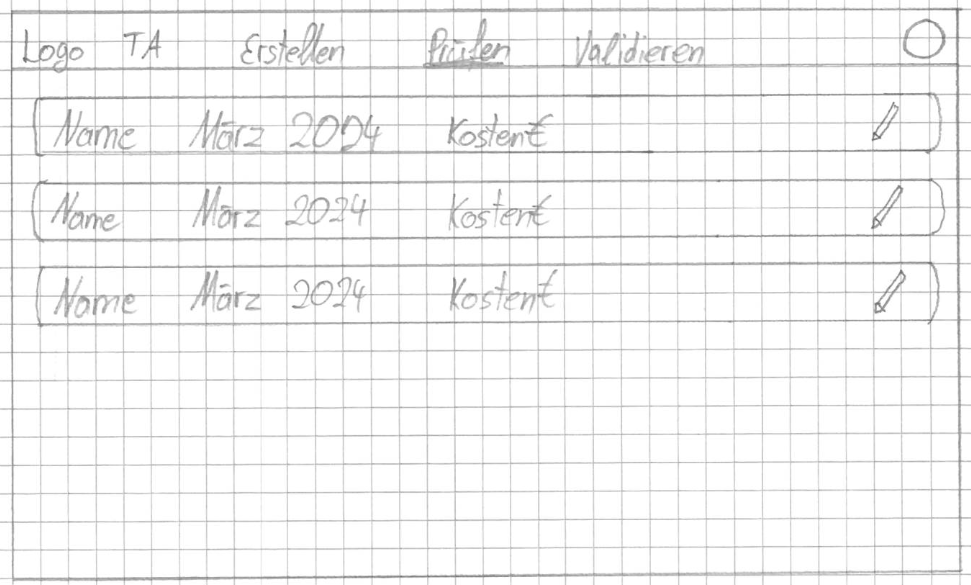 Logo TA Erstellen Prüfen Validieren
Name März 2024 Kosten€
Name März 2024 Kosten€
Name März 2024 Kosten€